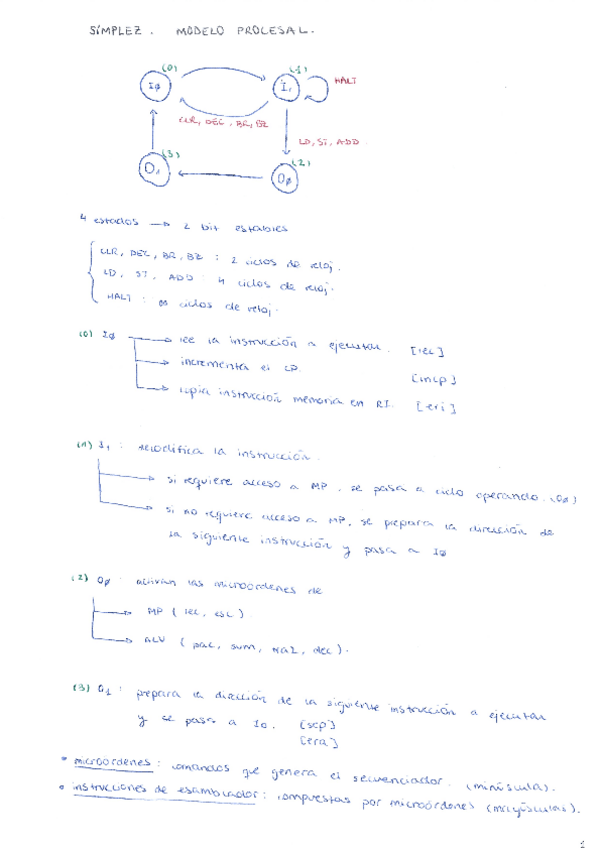 SIMPLEZ. MODELO PROCESAL.
(0) (1)
Iø I₁ HALT
CLR, DEC, BR, BZ
LD, ST, ADD
(3) (2)
O₁ Oø
4 estados → 2 bit estables
CLR, DEC, BR, BZ : 2 ciclos de reloj.
LD, ST, ADD : 4 ciclos de reloj.
HALT : ∞ ciclos de reloj.
(0) Iø → lee la instrucción a ejecutar. [lec]
→ incrementa el CP. [incp]
→ copia instrucción memoria en RI. [eri]
(1) I₁ : decodifica la instrucción.
→ si requiere acceso a MP, se pasa a ciclo operando. (Oø)
→ si no requiere acceso a MP, se prepara la dirección de
la siguiente instrucción y pasa a Iø
(2) Oø : activan las microórdenes de
→ MP (lec, esc).
→ ALU (pac, sum, dec).
(3) O₁ : prepara la dirección de la siguiente instrucción a ejecutar
y se pasa a Io. [scp]
[era]
• microórdenes : comandos que genera el secuenciador. (minúscula).
• instrucciones de ensamblador : compuestas por microórdenes (mayúsculas).
1